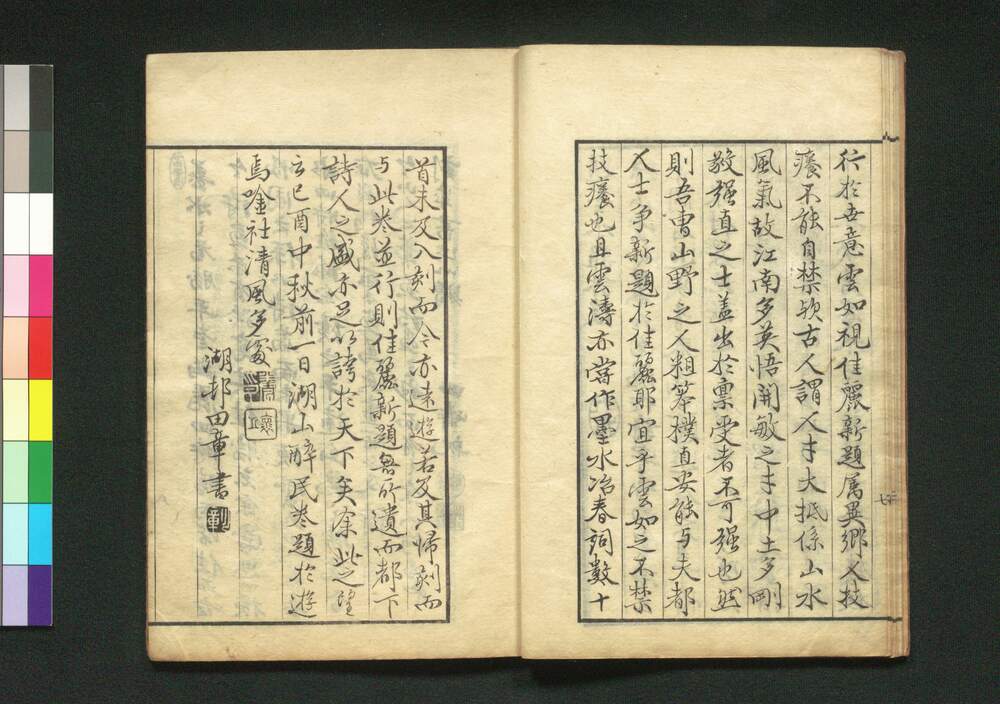 行於世意雲如視佳麗新題属異郷人技
癢不能自禁欤古人謂人才大抵係山水
風氣故江南多英悟開敏之才中土多剛
敢强直之士盖出於禀受者不可强也然
則吾曹山野之人粗笨樸直安能与夫都
人士争新題於佳麗耶宜乎雲如之不禁
技癢也且雲濤亦當作墨水冶春詞数十
首未及入刻而今亦遠遊若及其帰刻而
与此巻並行則佳麗新題無所遺而都下
詩人之盛亦足以誇於天下矣余此之望
云己酉中秋前一日湖山酔民巻題於遊
焉唫社清風多処
湖邨田章書